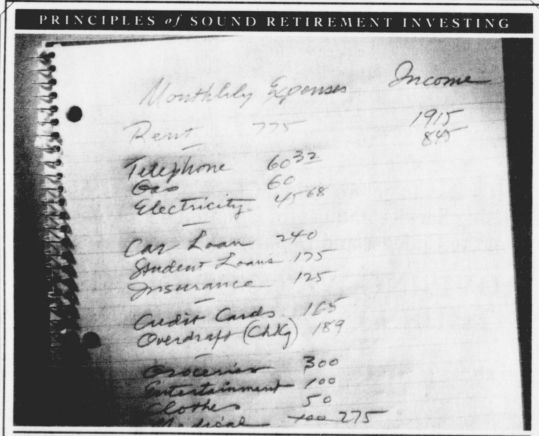 PRINCIPLES of SOUND RETIREMENT INVESTING
Monthlily Expenses Income
Rent 775 1915
845
Telephone 60 32
Gas 60
Electricity 45 68
Car Loan 240
Student Loans 175
Insurance 125
Credit Cards 165
Overdraft (Chkg) 189
Groceries 300
Entertainment 100
Clothes 50
Medical 275